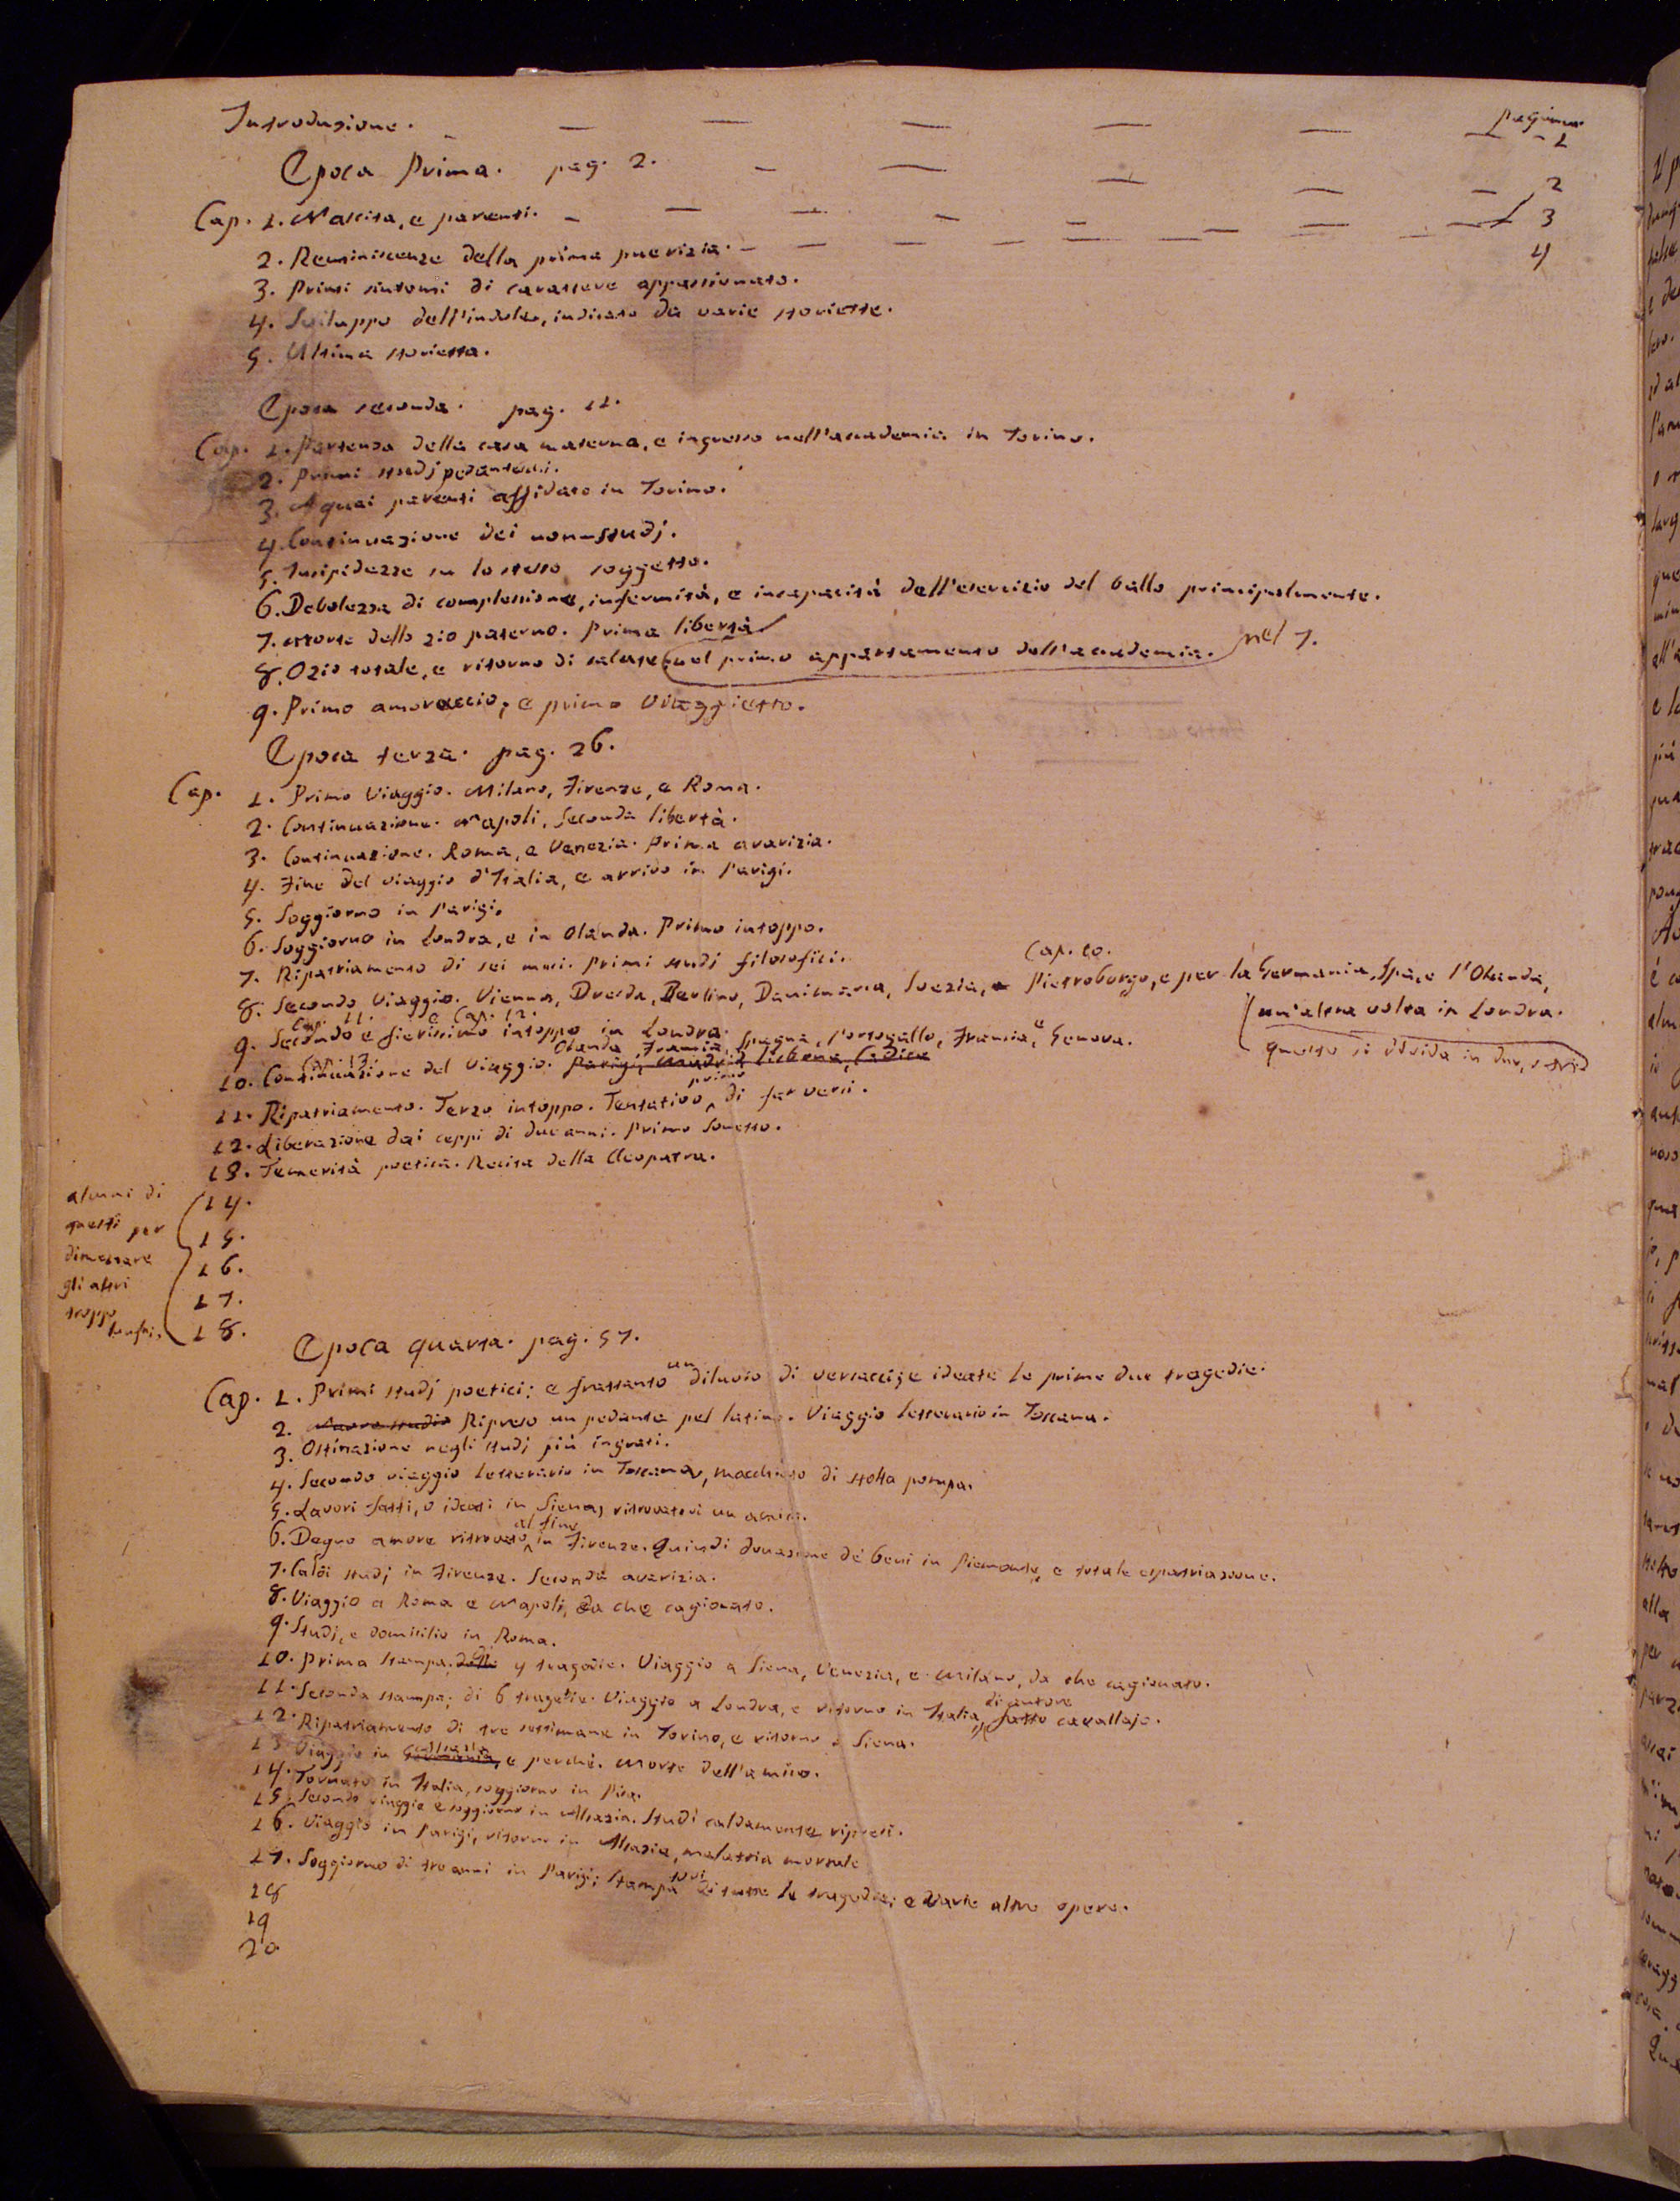 Introduzione. — — — — — — pagina 1
Epoca Prima. pag. 2. — — — — — 2
Cap. 1. Nascita, e parenti. — — — — — — 3
2. Reminiscenze della prima puerizia. — — — — — — 4
3. Primi sintomi di carattere appassionato.
4. Sviluppo dell'indole, indicato da varie storiette.
5. Ultima storietta.
Epoca seconda. pag. 11.
Cap. 1. Partenza della casa materna, e ingresso nell'accademia in Torino.
2. Primi studj pedanteschi.
3. A quai parenti affidato in Torino.
4. Continuazione dei non-studj.
5. Insipidezze su lo stesso soggetto.
6. Debolezza di complessione, infermità, e incapacità dell'esercizio del ballo principalmente.
7. Morte dello zio paterno. Prima libertà
8. Ozio totale, e ritorno di salute nel primo appartamento dell'accademia. nel 7.
9. Primo amoraccio, e primo Viaggietto.
Epoca terza. pag. 26.
Cap. 1. Primo Viaggio. Milano, Firenze, e Roma.
2. Continuazione. Napoli, seconda libertà.
3. Continuazione. Roma, e Venezia. Prima avarizia.
4. Fine del viaggio d'Italia, e arrivo in Parigi.
5. Soggiorno in Parigi.
6. Soggiorno in Londra, e in Olanda. Primo intoppo.
7. Ripatriamento di sei mesi. Primi studj filosofici.
Cap. 10.
8. Secondo Viaggio. Vienna, Dresda, Berlino, Danimarca, Svezia, Pietroburgo, e per la Germania, Spa, e l'Olanda,
un'altra volta in Londra.
questo si divida in due,
Cap. 11. e Cap. 12.
9. Secondo e fierissimo intoppo in Londra.
Olanda, Francia, Spagna, Portogallo, Francia, e Genova.
Cap. 13.
10. Continuazione del Viaggio. Parigi, Madrid Lisbona, Cadice
primo
11. Ripatriamento. Terzo intoppo. Tentativo di far versi.
12. Liberazione dai ceppi di due anni. Primo Sonetto.
13. Temerità poetica. Recita della Cleopatra.
14.
15.
16.
17.
18.
alcuni di
questi per
dimezzare
gli altri
troppo
lunghi.
Epoca quarta. pag. 57.
Cap. 1. Primi studj poetici; e frattanto un diluvio di versacci; e ideate le prime due tragedie.
2. Nuovo studio Ripreso un pedante pel latino. Viaggio letterario in Toscana.
3. Ostinazione negli studj più ingrati.
4. Secondo viaggio letterario in Toscana, macchiato di stolta pompa.
5. Lavori fatti, o ideati in Siena, ritrovatovi un amico.
al fine
6. Degno amore ritrovato in Firenze. Quindi donazione de' beni in Piemonte, e totale espatriazione.
7. Caldi studj in Firenze. Seconda avarizia.
8. Viaggio a Roma e Napoli, da che cagionato.
9. Studj, e domicilio in Roma.
10. Prima stampa di delle 4 tragedie. Viaggio a Siena, Venezia, e Milano, da che cagionato.
11. Seconda stampa; di 6 tragedie. Viaggio a Londra, e ritorno in Italia, di autore fatto cavallajo.
12. Ripatriamento di tre settimane in Torino, e ritorno a Siena.
Alsazia
13. Viaggio in Germania, e perchè. Morte dell'amico.
14. Tornato in Italia, soggiorno in Pisa.
15. Secondo viaggio e soggiorno in Alsazia. Studi caldamente ripresi.
16. Viaggio in Parigi, ritorno in Alsazia, malattia mortale
17. Soggiorno di tre anni in Parigi; stampa quivi di tutte le tragedie; e varie altre opere.
18
19
20